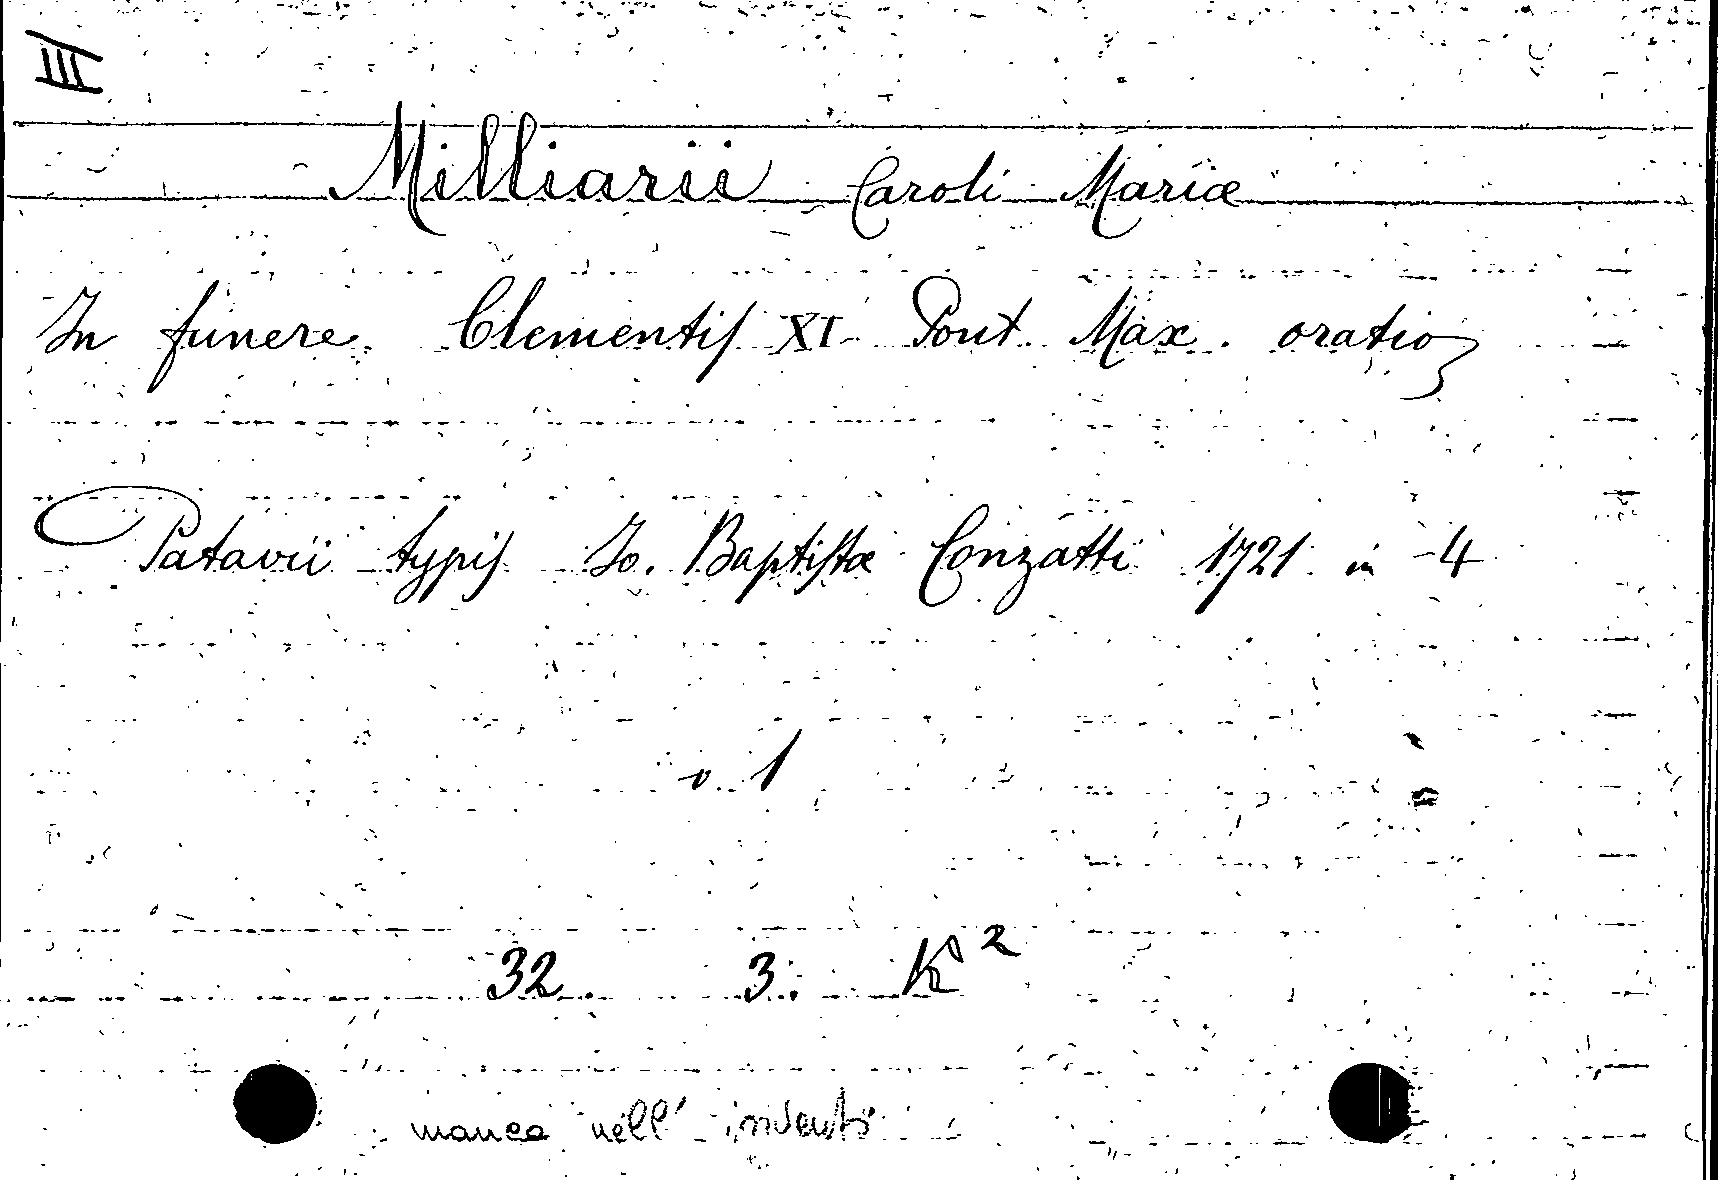 III
Milliarii Caroli Mariæ
In funere Clementis XI Pont. Max. oratio
Patavii typis Jo. Baptistæ Conzatti 1721 in 4
v. 1
32. 3. K²
manca nell'